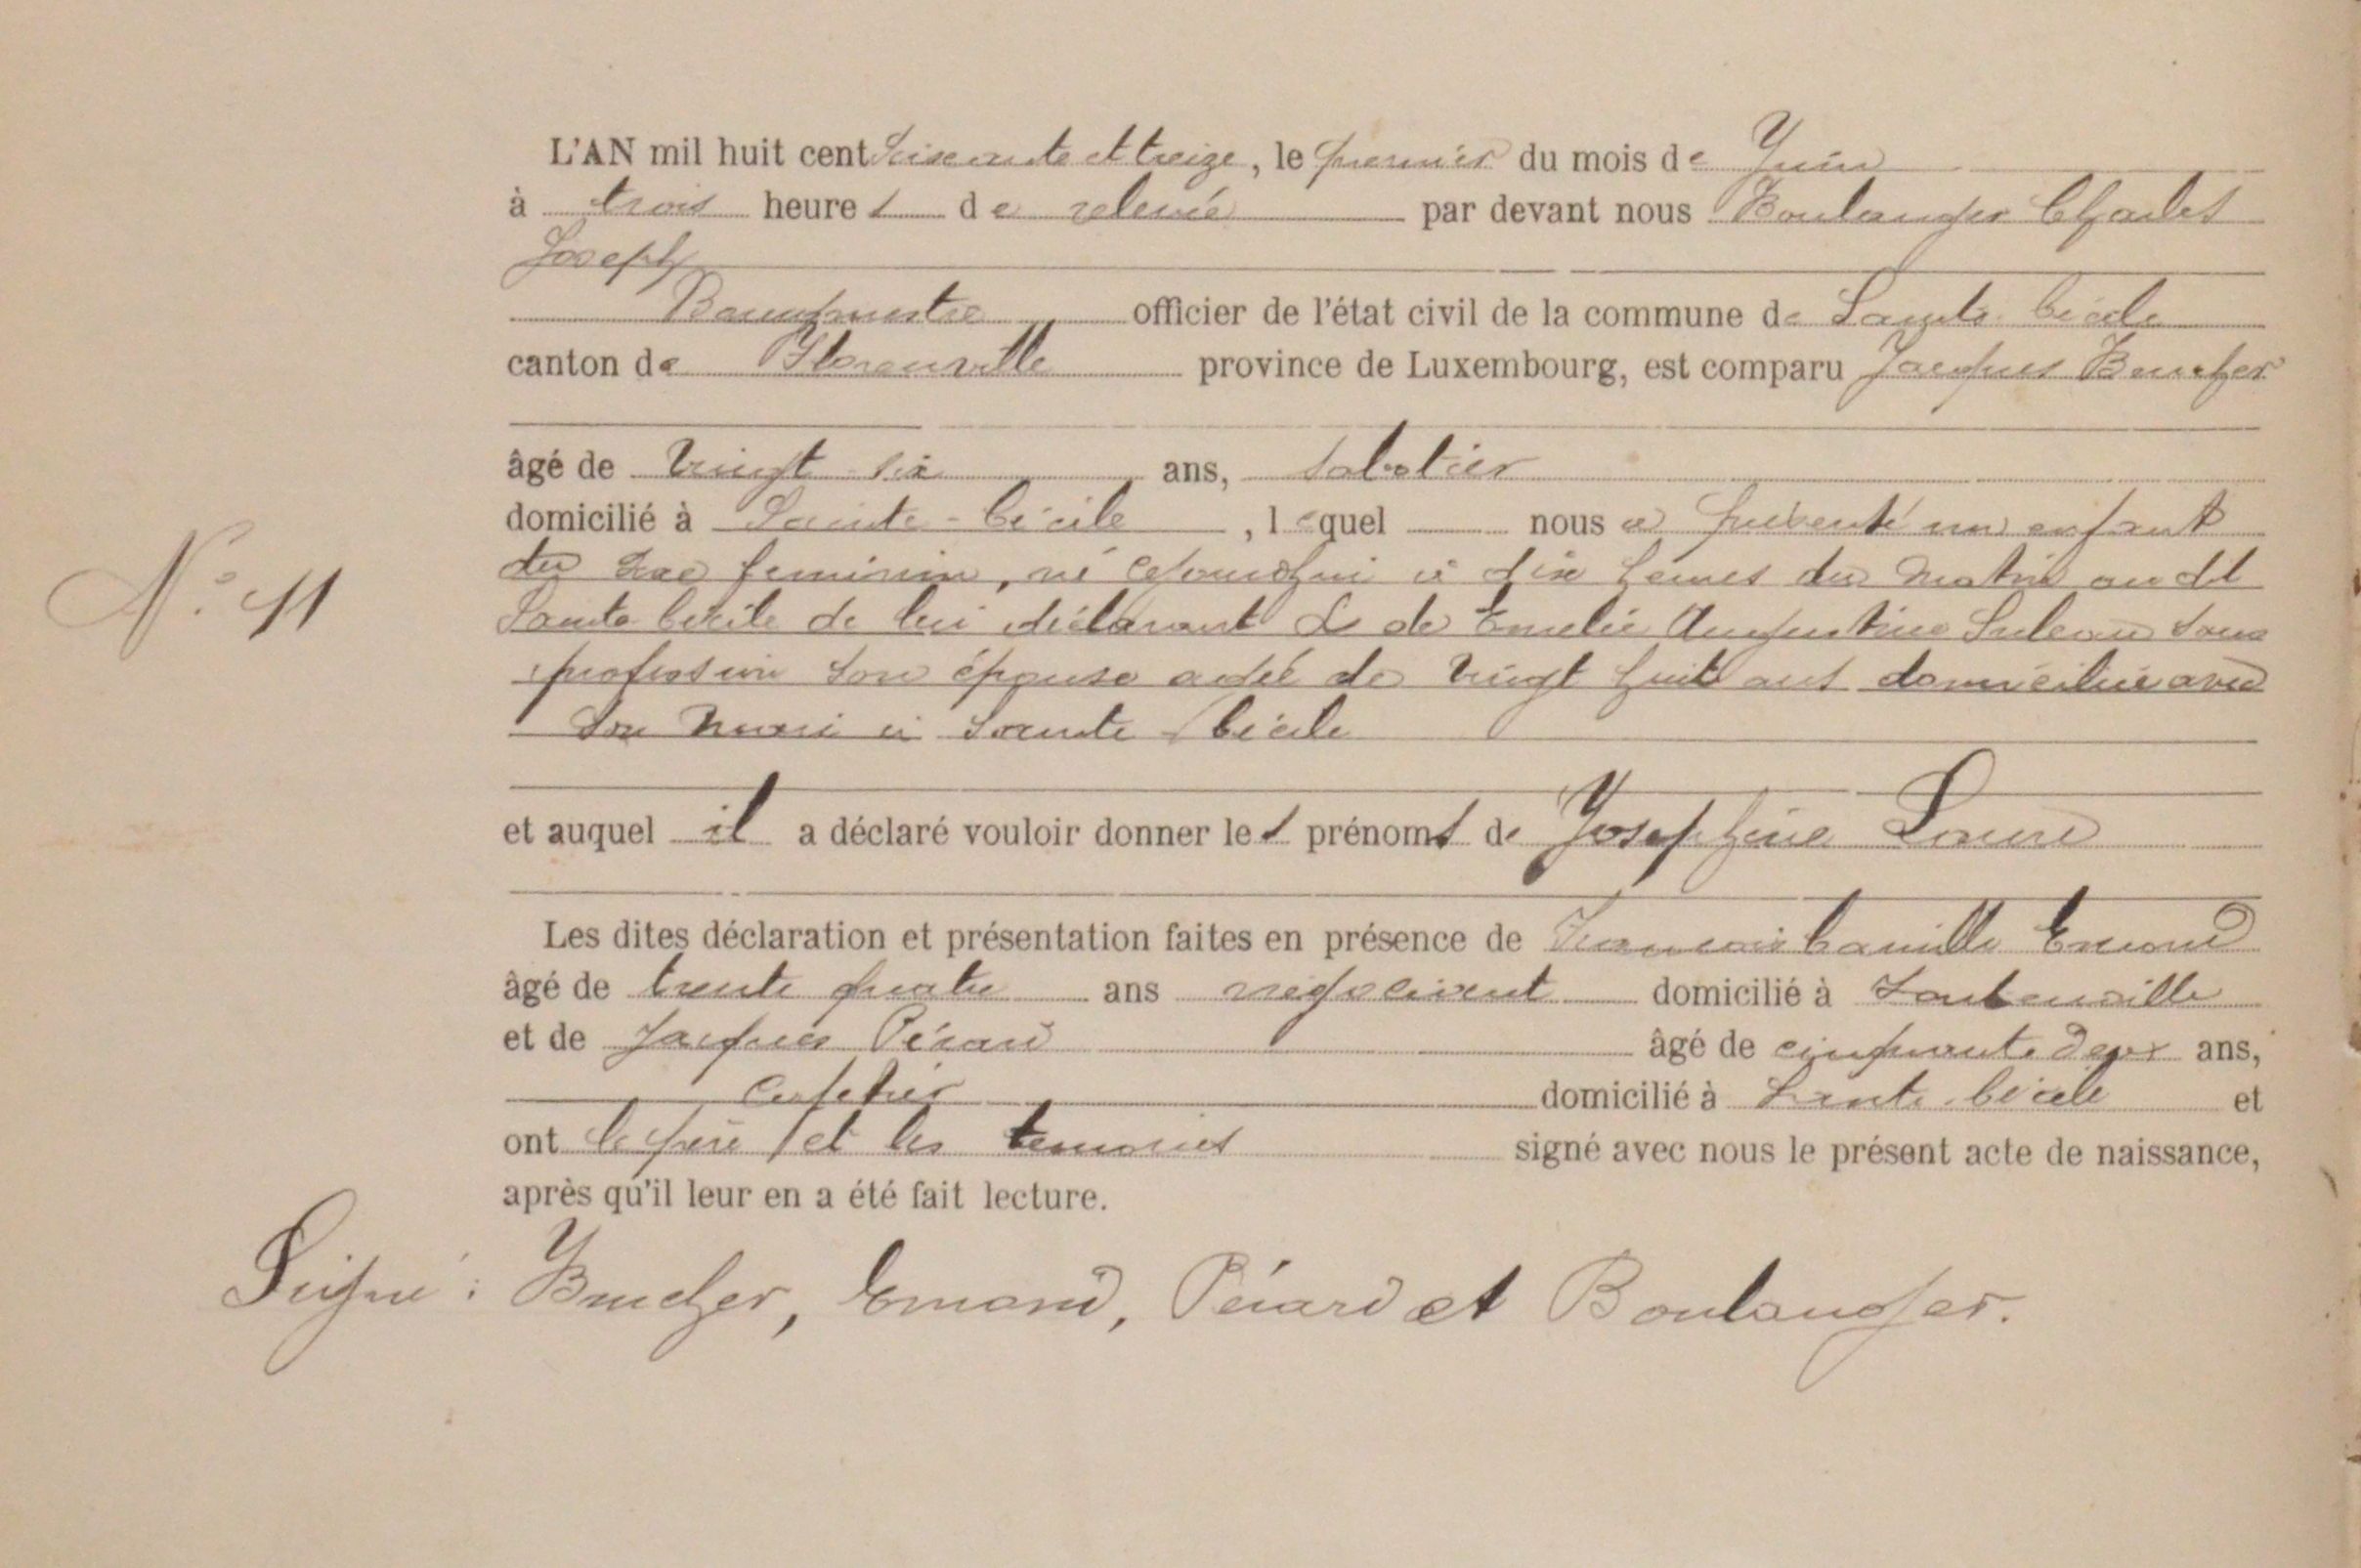 L'AN mil huit cent soixante et treize, le premier du mois de Juin
à trois heures de relevée par devant nous Boulanger Charles
Joseph
Bourgmestre officier de l'état civil de la commune de Sainte Cécile
canton de Florenville province de Luxembourg, est comparu Jacques Bucher
âgé de vingt six ans, sabotier
domicilié à Sainte-Cécile, lequel nous a présenté un enfant
du sexe feminin, né cejourd'hui à dix heures du matin au dit
N° 11
Sainte Cécile de lui déclarant & de Emelie Augustine Suleau sans
profession son épouse agée de vingt huit ans domiciliée avec
son mari à Sainte Cécile
et auquel il a déclaré vouloir donner les prénoms de Josephine Laure
Les dites déclaration et présentation faites en présence de Francois Camille Emond
âgé de trente quatre ans négociant domicilié à
et de Jacques Pérard âgé de cinquante deux ans,
domicilié à Sainte Cécile et
ont le père et les temoins signé avec nous le présent acte de naissance,
après qu'il leur en a été fait lecture.
Signé : Bucher, Emond, Pérard et Boulanger.